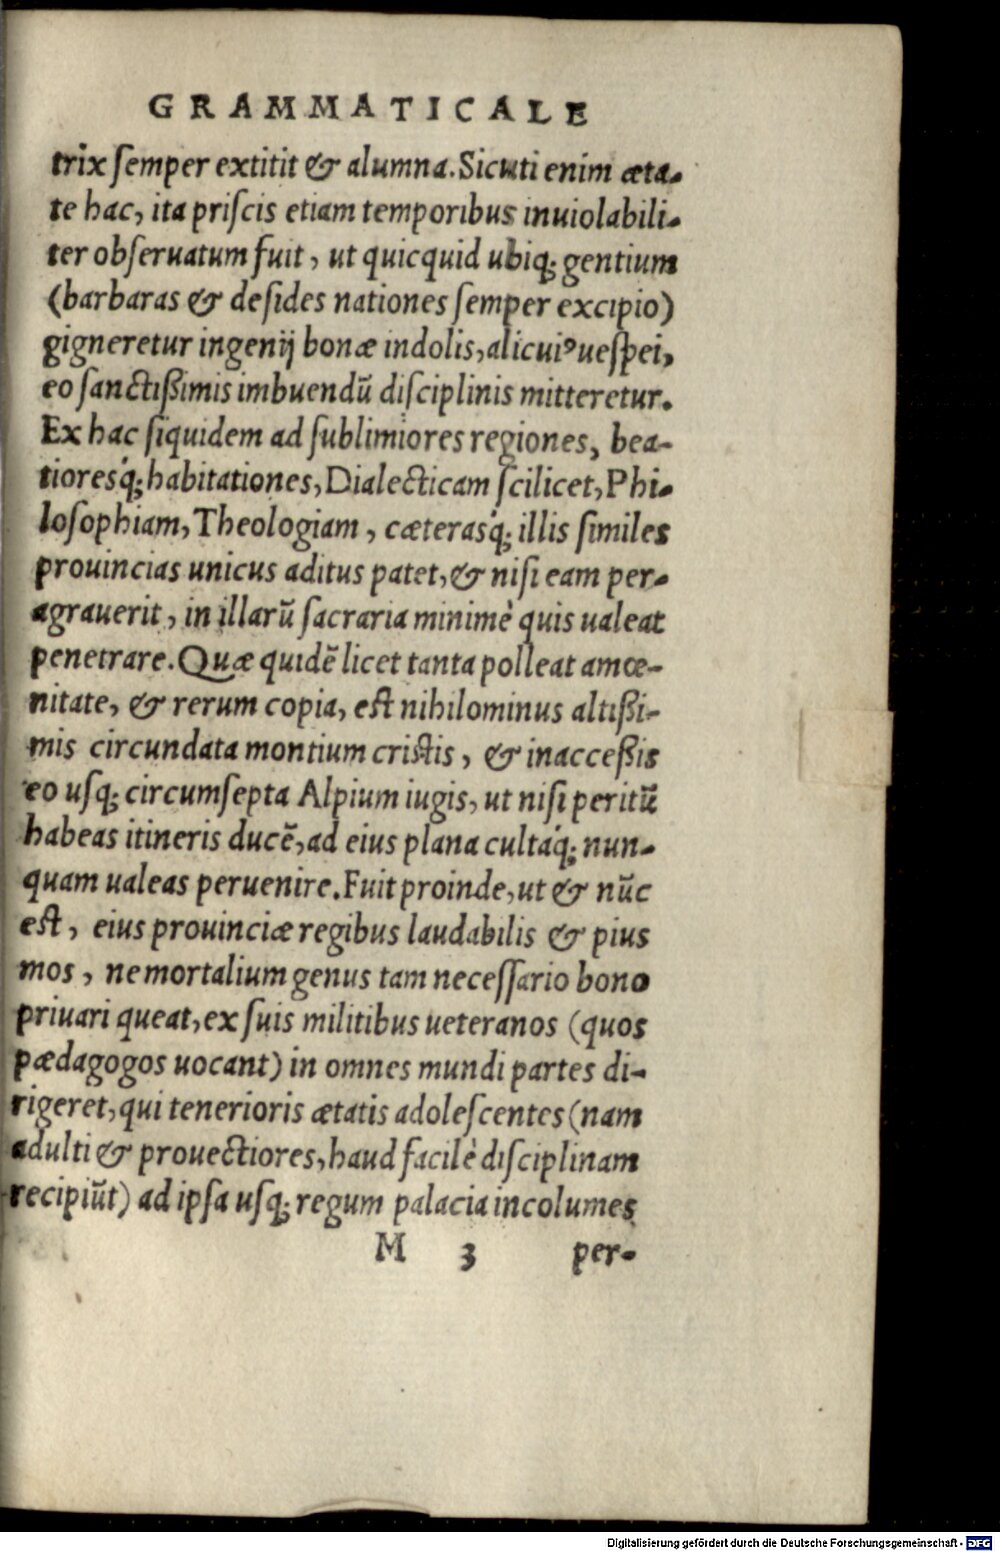 GRAMMATICALE
trix ſemper extitit & alumna. Sicuti enim æta-
te hac, ita priſcis etiam temporibus inuiolabili-
ter obſeruatum fuit, ut quicquid ubiq; gentium
(barbaras & deſides nationes ſemper excipio)
gigneretur ingenij bonæ indolis, alicuiꝰue ſpei,
eo ſanctißimis imbuendũ diſciplinis mitteretur.
Ex hac ſiquidem ad ſublimiores regiones, bea-
tioresq́; habitationes, Dialecticam ſcilicet, Phi-
loſophiam, Theologiam, cæterasq́; illis ſimiles
prouincias unicus aditus patet, & niſi eam per-
agrauerit, in illarũ ſacraria minimè quis ualeat
penetrare. Quæ quidẽ licet tanta polleat amœ-
nitate, & rerum copia, eſt nihilominus altißi-
mis circundata montium criſtis, & inacceßis
eo uſq; circumſepta Alpium iugis, ut niſi peritũ
habeas itineris ducẽ, ad eius plana cultaq́; nun-
quam ualeas peruenire. Fuit proinde, ut & nũc
eſt, eius prouinciæ regibus laudabilis & pius
mos, ne mortalium genus tam neceſſario bono
priuari queat, ex ſuis militibus ueteranos (quos
pædagogos uocant) in omnes mundi partes di-
rigeret, qui tenerioris ætatis adoleſcentes (nam
adulti & prouectiores, haud facilè diſciplinam
recipiũt) ad ipſa uſq; regum palacia incolumes
M 3 per-
Digitalisierung gefördert durch die Deutsche Forschungsgemeinschaft - DFG